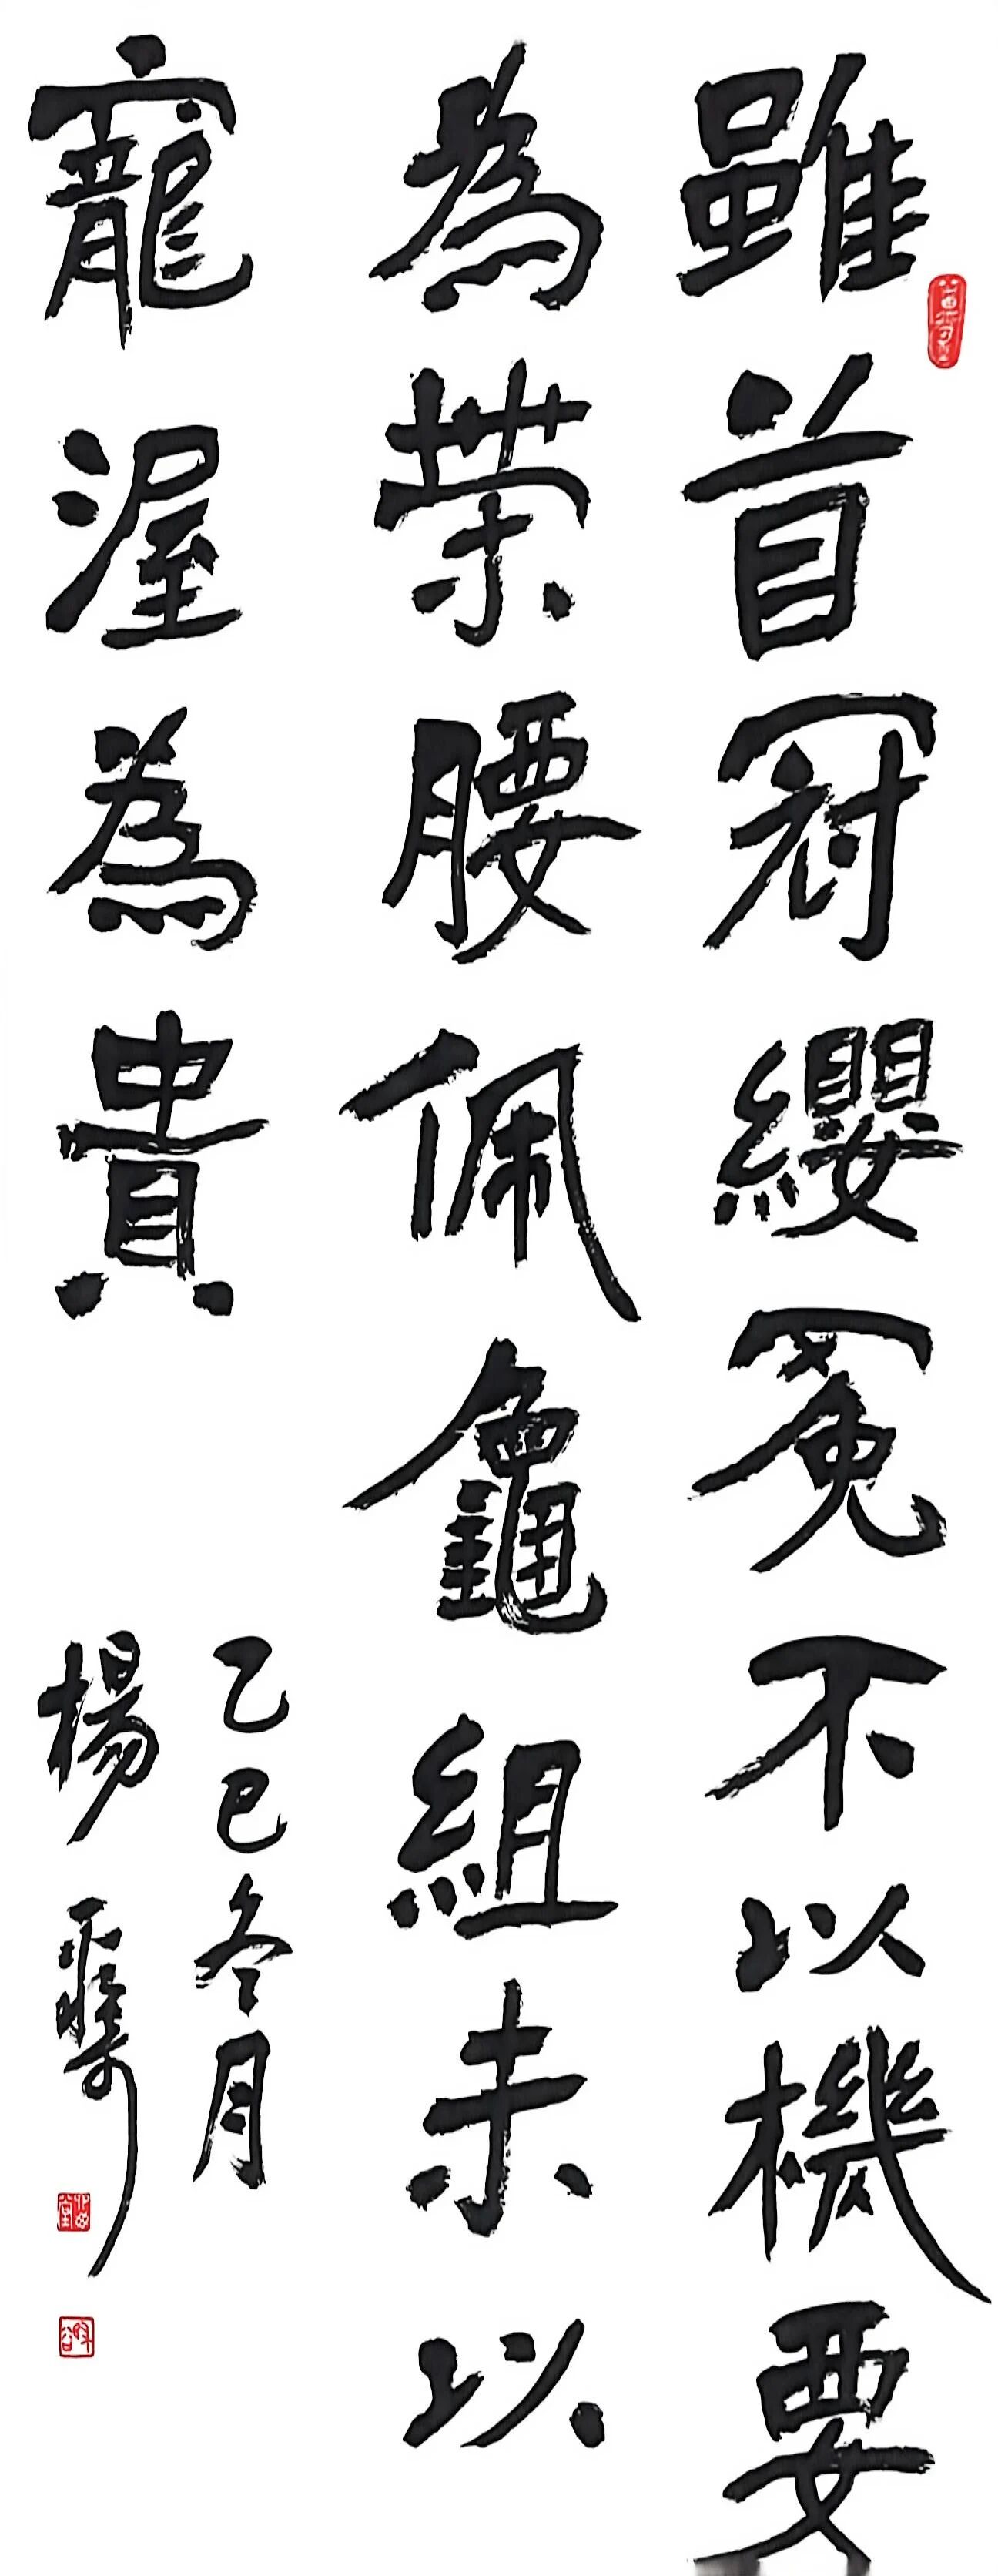 雖首冠纓冕不以機要
為榮腰佩龜組未以
寵渥為貴
乙巳冬月
楊